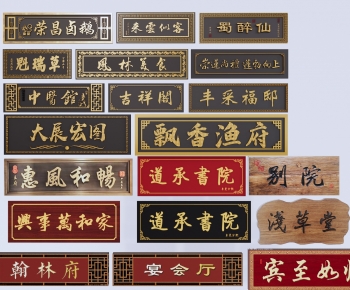 荣昌卤鹅
采雲仙客
蜀醉仙
魁瑞草
風林美食
中醫館
吉祥閣
丰采福邸
大展宏图
飘香渔府
惠風和暢
道承書院
别院
興事萬和家
道承書院
淺草堂
翰林府
宴会厅
宾至如归